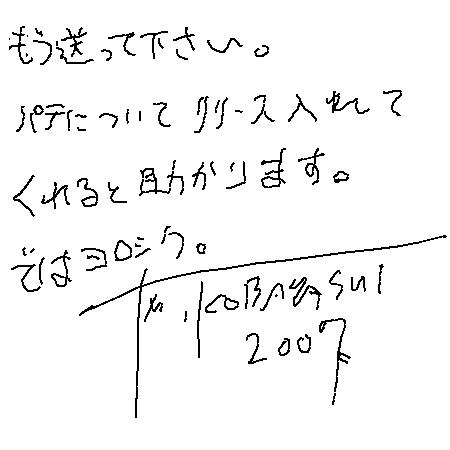 もう送って下さい。
パテについて リリース入れて
くれると助かります。
ではヨロシク。
KOBAYASHI
2007